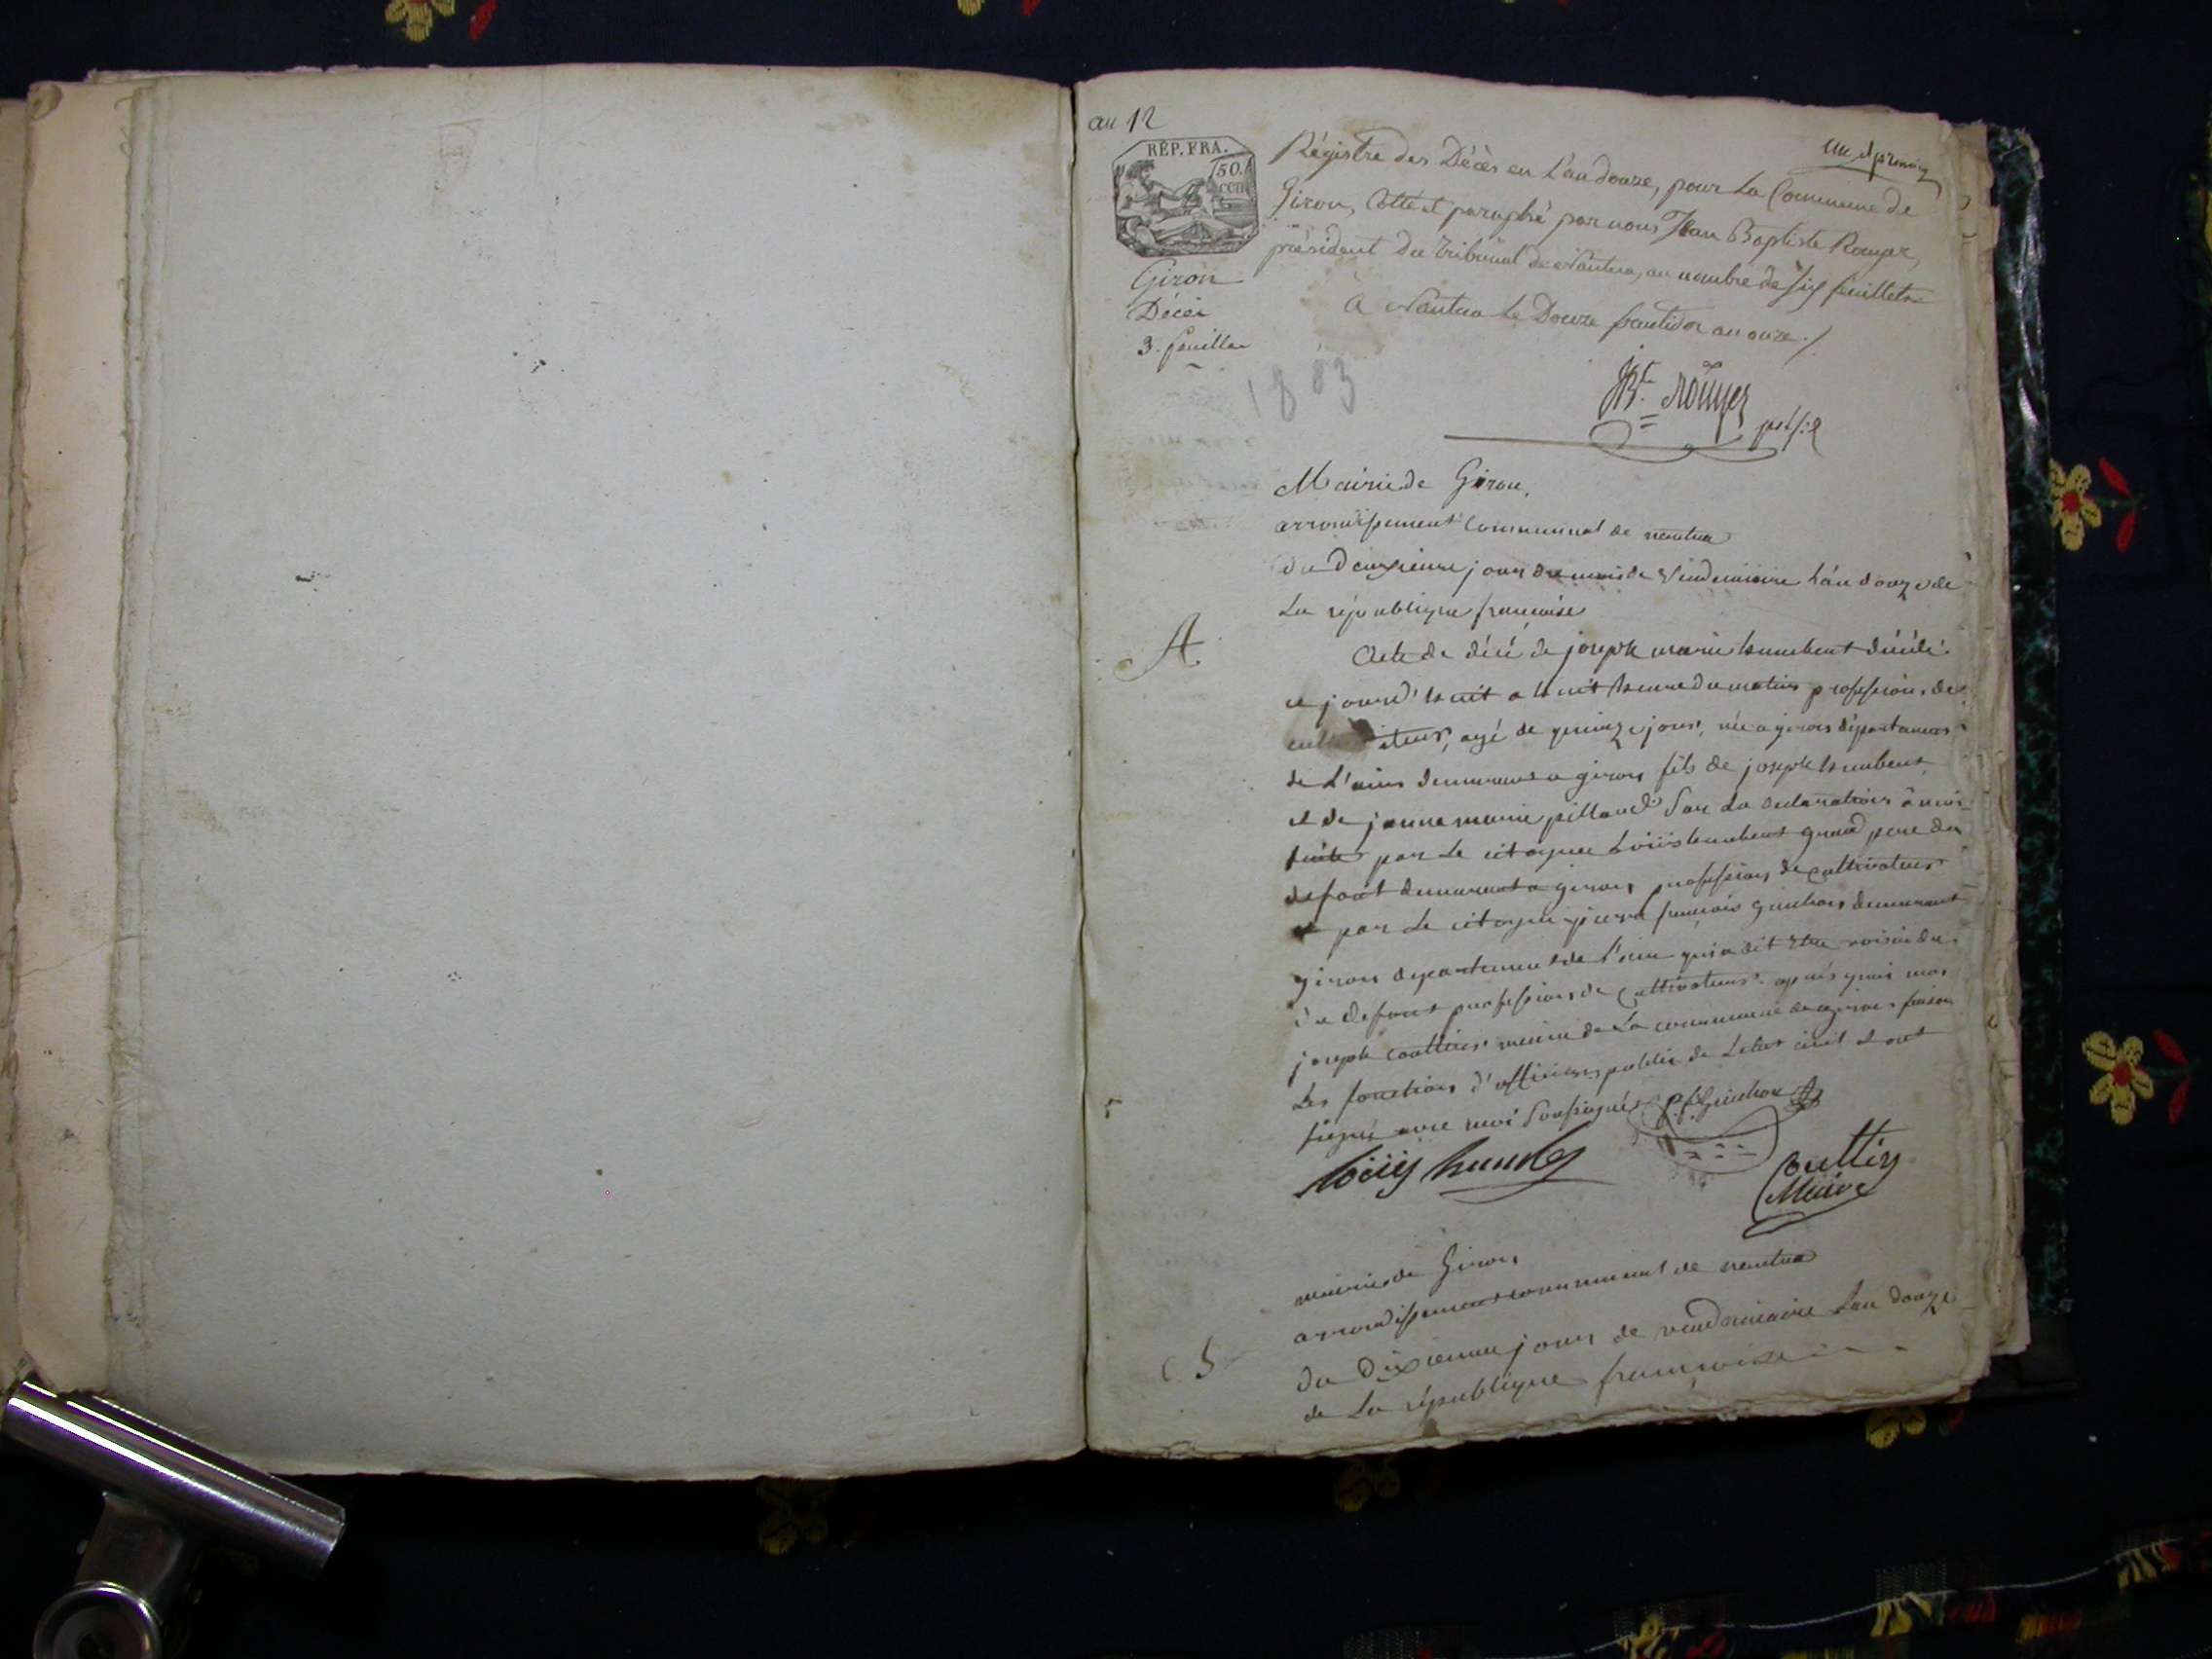 an 12
un et premier
RÉP. FRA.
50.
CEN
Giron
Décès
3. feuilles
Régistre des Décès en L'an douze, pour La Commune de
Giron, Cotté et paraphé par nous Jean Baptiste Rouyer,
président du tribunal de Nantua, au nombre de six feuillets
à Nantua le Douze fructidor an onze ./.
JBte. Rouyer
1803
Mairie de Giron,
arrondissement Communal de nantua
du deuxieme jour du mois de Vendemiaire L'an douze de
La république francaise
A
Acte de décé de joseph marie humbert décédé
ce jourd'huit a huit heure du matin profession de
age de quinze jour, née a giron département
de L'ain demeurant a giron fils de joseph humbert
et de janne marie pilland Sur La declaration à moi
faite par Le citoyen Loüis humbert grand pere du
defont demeurant a giron profession de cultivateur
et par Le citoyen pierre françois guichon demeurant
giron departement de l'ain qui a dit etre voisin du
du defont profession de Cultivateur. après quoi moi
joseph couttier maire de La commune de giron faison
Les fonction d'officier public de Letat civil et ont
signé avec moi Soussigné
P. f. Guichon
loüis humb
Maire
mairie de Giron
arrondissement communal de nantua
du Dixieme jour de vendemiaire Lan douze
de La république françoise - - -